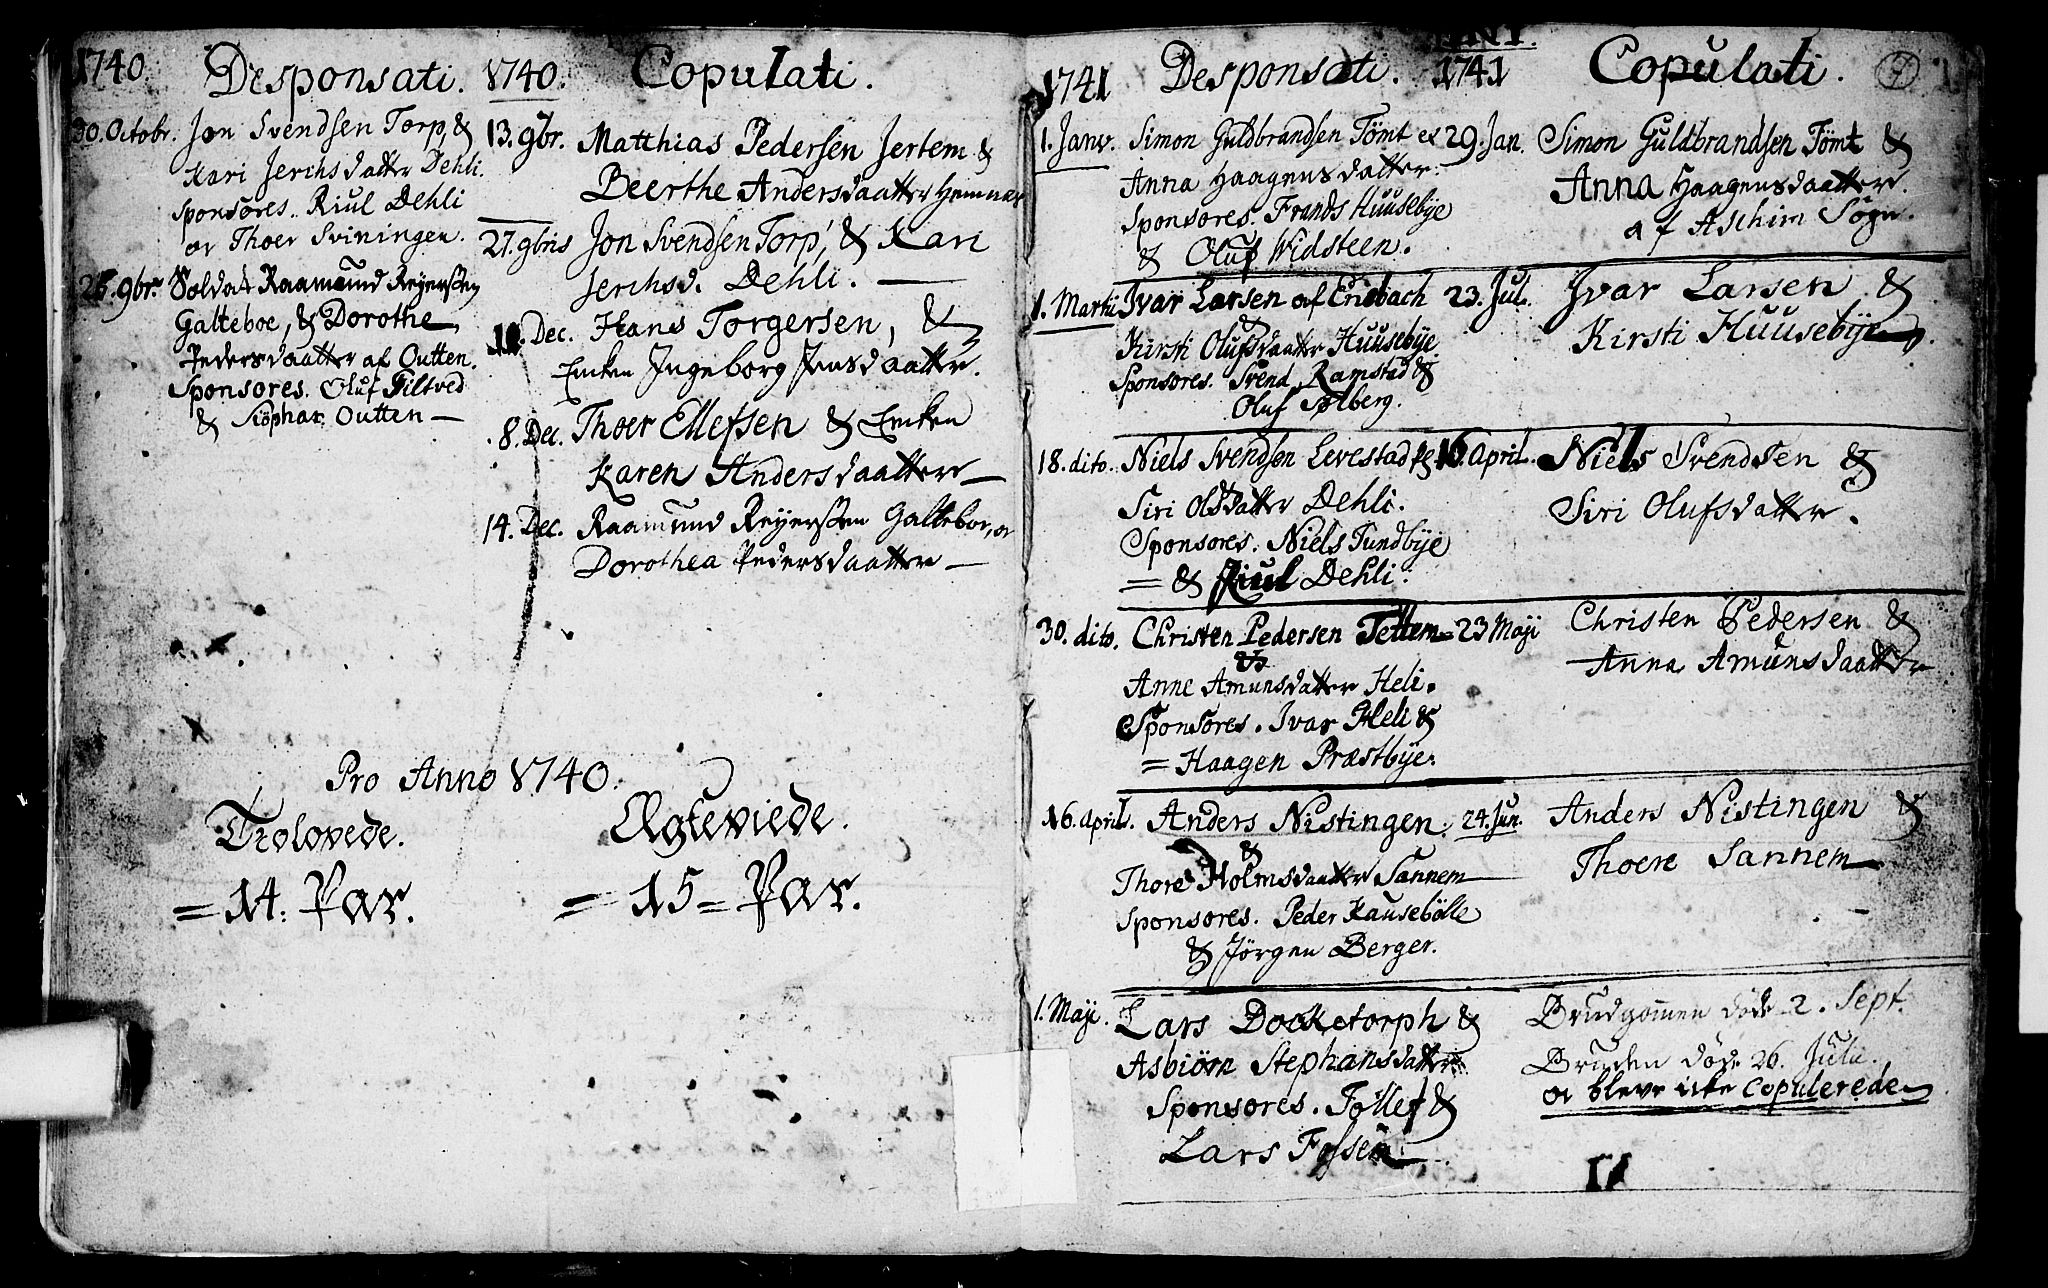 1740
Desponsati.
30. Octobr. Jon Svendsen Torp, &
Kari Jerichsdatter Dehli.
Sponsores. Riul Dehli
oc Thoer Sviningen.
26. 9br. Soldat Raamund Reyerssen
Galteboe, & Dorothe
Pedersdaatter af Outten.
Sponsores. Oluf Tiltved
& Siöphar Outten —
1740.
Copulati.
13. 9br. Matthias Pedersen Jertem &
Beerthe Andersdaatter Hemnæs
27. 9bris Jon Svendsen Torp, & Kari
Jerichsd. Dehli. —
Dec. Hans Torgersen, &
Encken Ingeborg Jensdaatter.
8. Dec. Thoer Ellefsen & Encken
Karen Andersdaatter —
14. Dec. Raamund Reyerssen Galteboe, oc
Dorothea Pedersdaatter —
Pro Anno 1740.
Trolovede.
= 14. Par.
Ægteviede.
= 15 = Par.
1741
Desponsati.
1741
Copulati.
7
1. Janv. Simon Guldbrandsen Tömt et
Anna Haagensdatter.
Sponsores. Frands Huusebye
& Oluf Widsteen.
29. Jan. Simon Guldbrandsen Tömt &
Anna Haagensdaatter.
af Aschim Sogn.
1. Martii Ivar Larsen af Enebach
&
Kirsti Olufsdaatter Huusebye
Sponsores. Svend Ramstad &
Oluf Solberg.
23. Jul. Ivar Larsen &
Kirsti Huusebye.
18. dito. Niels Svendsen Levestad &
Siri Olsdatter Dehli.
Sponsores. Niels Tundbye
= & Riul Dehli.
16. April. Niels Svendsen &
Siri Olufsdatter.
30. dito. Christen Pedersen Tettem
&
Anne Amunsdatter Heli.
Sponsores. Ivar Heli &
= Haagen Præstbye.
23 Maji Christen Pedersen &
Anna Amunsdaatter
16. April. Anders Nistingen.
&
Thore Holmsdaatter Sannem
Sponsores. Peder Kausebölle
& Jörgen Berger.
24. Jun. Anders Nistingen &
Thoere Sannem
1. Maji. Lars Docketorph &
Asbiörn Stephansdatter
Sponsores. Töllef &
Lars Fossen
Brudgommen döde 2. Sept.
Bruden döde 26. Julii.
oc bleve icke Copulerede